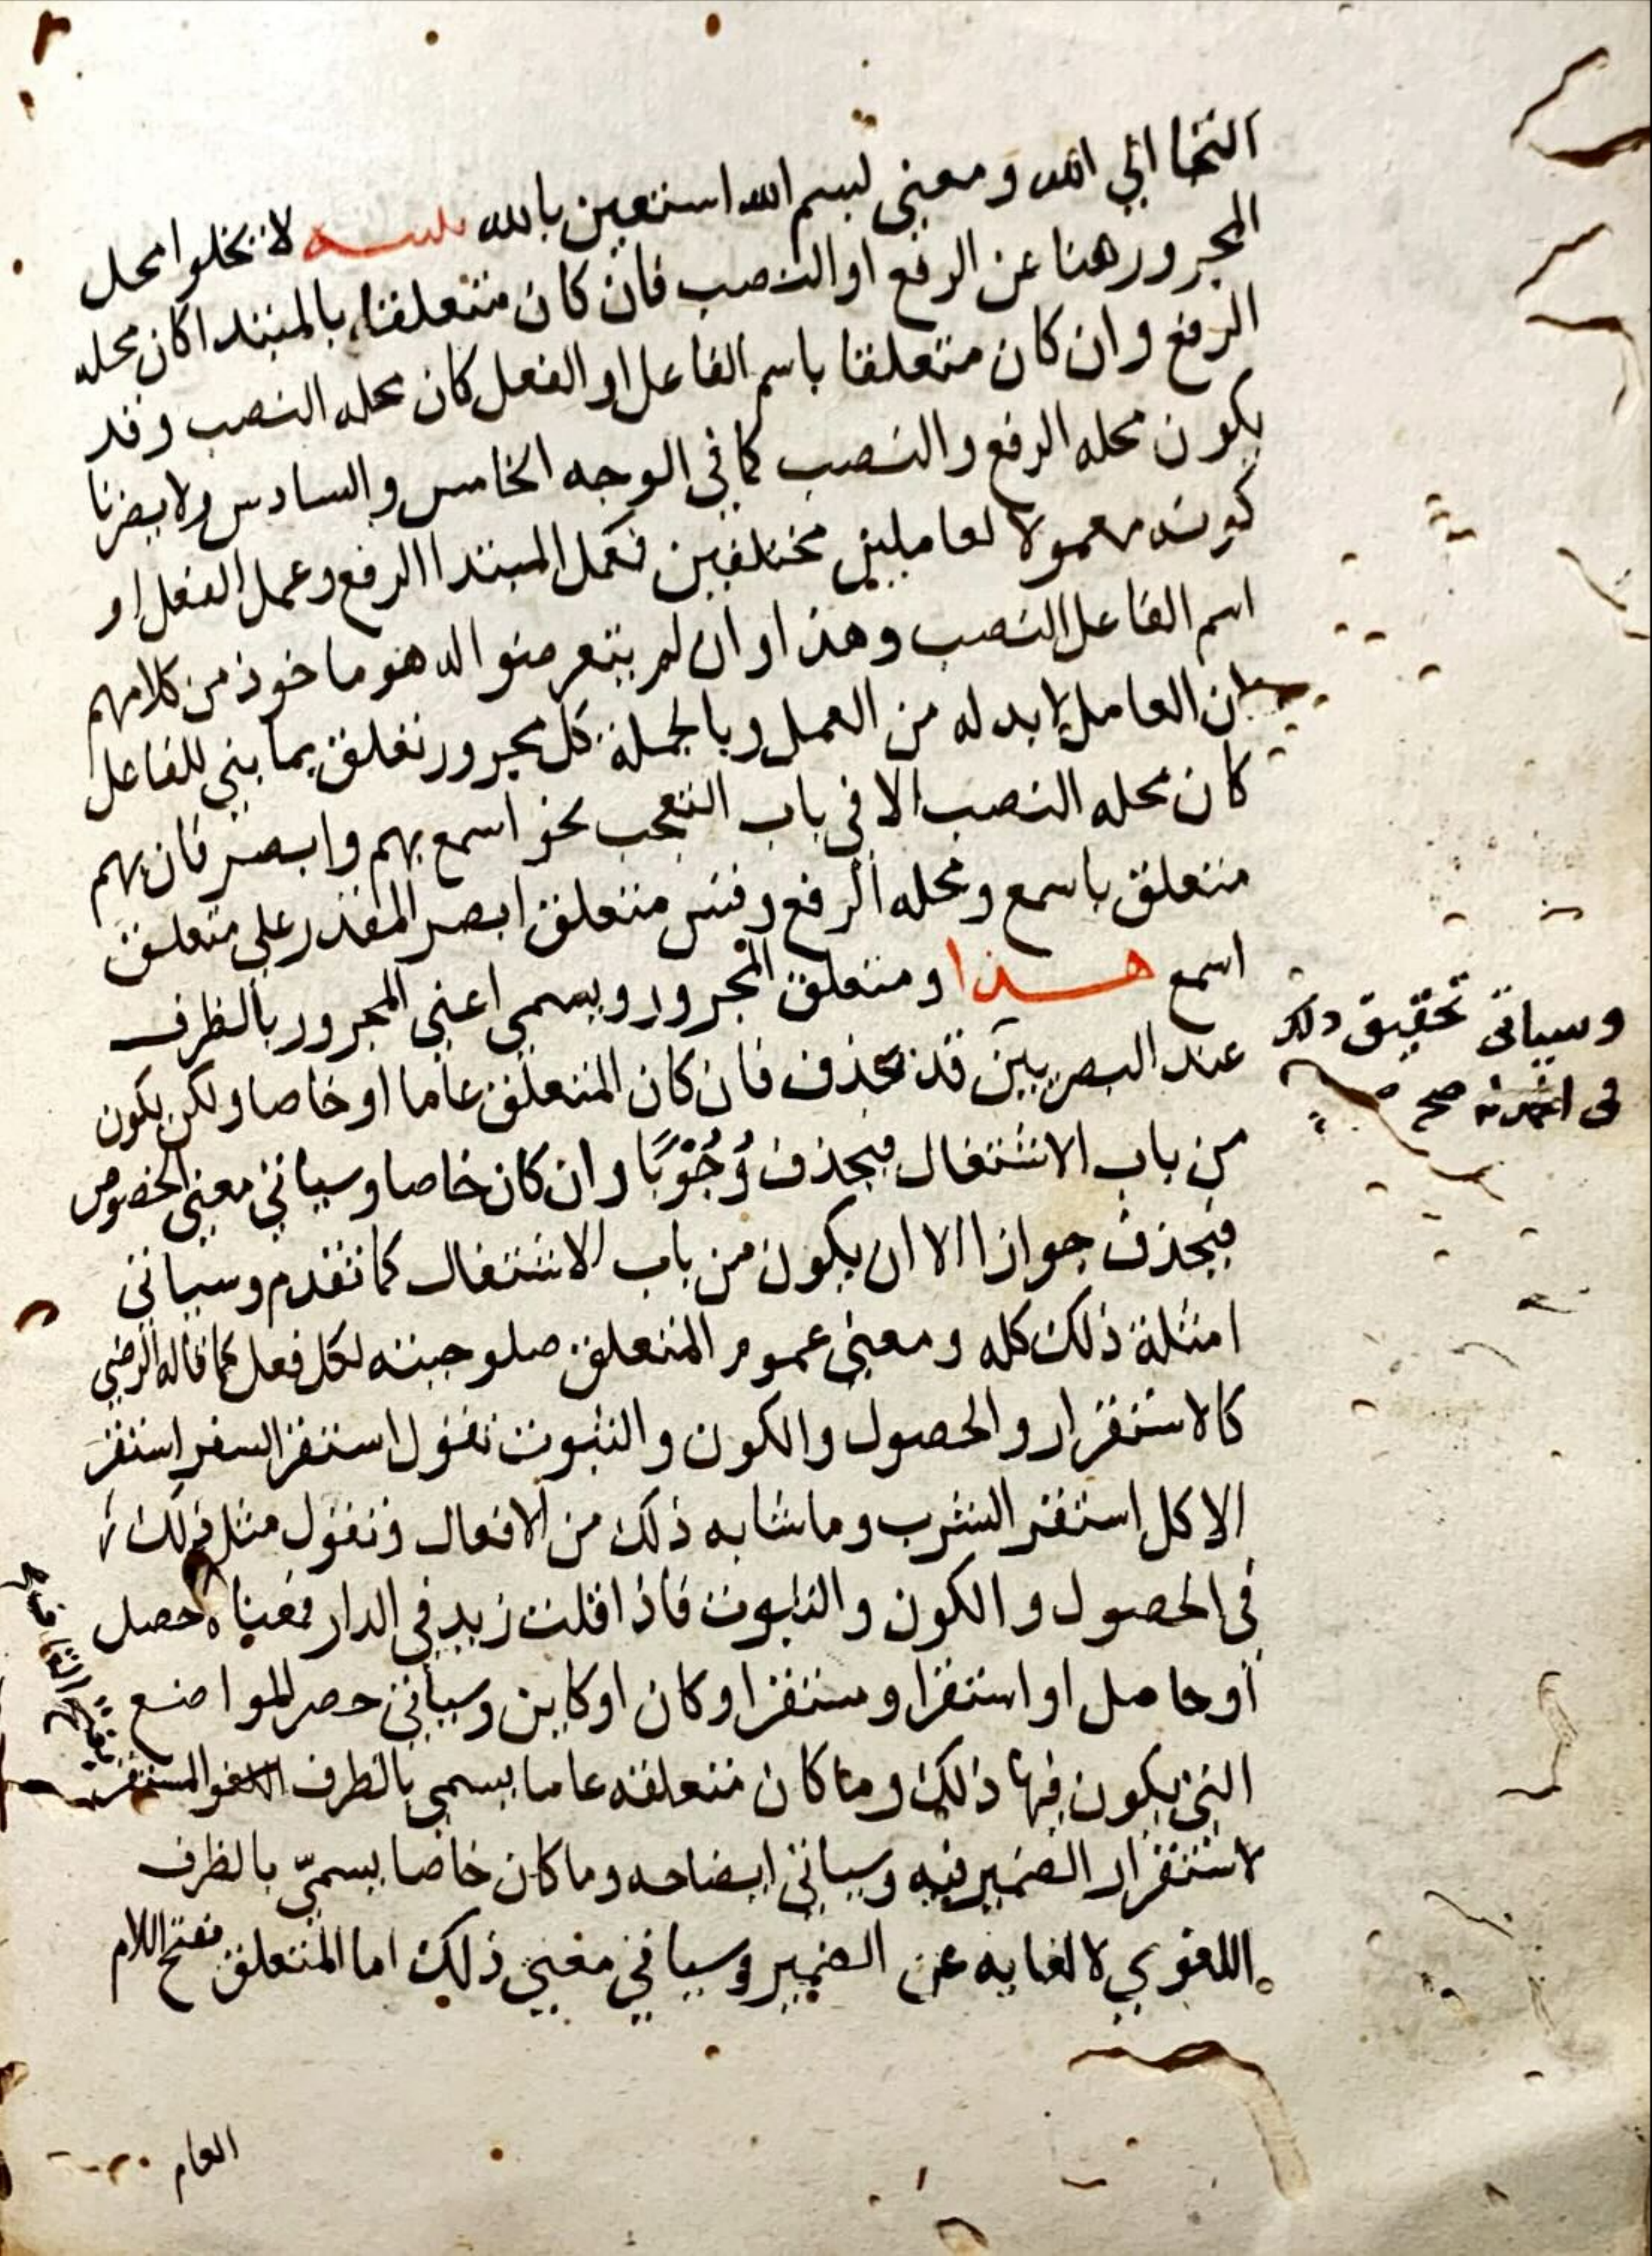 التجا الي الله ومعني بسم الله استعين بالله تنبيه لا تخلوا محل
المجرور هنا عن الرفع او النصب فان كان متعلقا بالمبتدا كان محله
الرفع وان كان متعلقا باسم الفاعل او الفعل كان محله النصب وقد
يكون محله الرفع والنصب كما في الوجه الخامس والسادس ولا يضرنا
كونه معمولا لعاملين مختلفين فعمل المبتدا الرفع وعمل الفعل او
اسم الفاعل النصب وهذا وان لم يتعرضوا له هو ماخوذ من كلامهم
ان العامل لا بد له من العمل وبالجملة كل مجرور تعلق بما بني للفاعل
كان محله النصب الا في باب التعجب نحو اسمع بهم وابصر فان بهم
متعلق باسمع ومحله الرفع وقس متعلق ابصر المقدر علي متعلق
اسمع هذا ومتعلق المجرور ويسمي اعني المجرور بالظرف
عند البصريين قد يحذف فان كان المتعلق عاما او خاصا ولكن يكون
من باب الاشتغال فيحذف وُجُوْبًا وان كان خاصا وسياتي معني الخصوص
فيحذف جوازا الا ان يكون من باب الاشتغال كما تقدم وسياتي
امثلة ذلك كله ومعني عموم المتعلق صلوحيته لكل فعل كما قاله الرضي
كالاستقرار والحصول والكون والثبوت تقول استقر السفر استقر
الاكل استقر الشرب وما شابه ذلك من الافعال وتقول مثل ذلك
في الحصول والكون والثبوت فاذا قلت زيد في الدار فمعناه حصل
او حاصل او استقر او مستقر او كان او كاين وسياتي حصر المواضع
التي يكون فيها ذلك وما كان متعلقه عاما يسمي بالظرف المستقر
لاستقرار الضمير فيه وسياتي ايضاحه وما كان خاصا يسمّي بالظرف
اللغوي لالغايه عن الضمير وسياتي معني ذلك اما المتعلق بفتح اللام
وسياتي تحقيق ذلك
في صح
بفتح القاف
العام